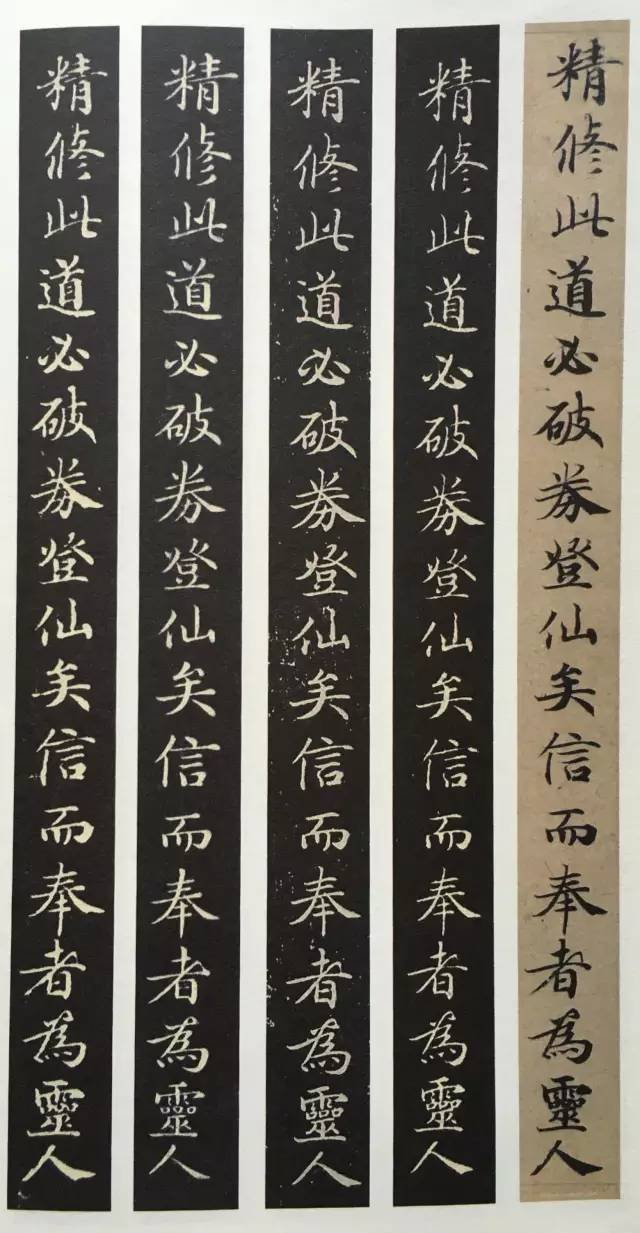 精修此道必破券登仙矣信而奉者為靈人
精修此道必破券登仙矣信而奉者為靈人
精修此道必破券登仙矣信而奉者為靈人
精修此道必破券登仙矣信而奉者為靈人
精修此道必破券登仙矣信而奉者為靈人